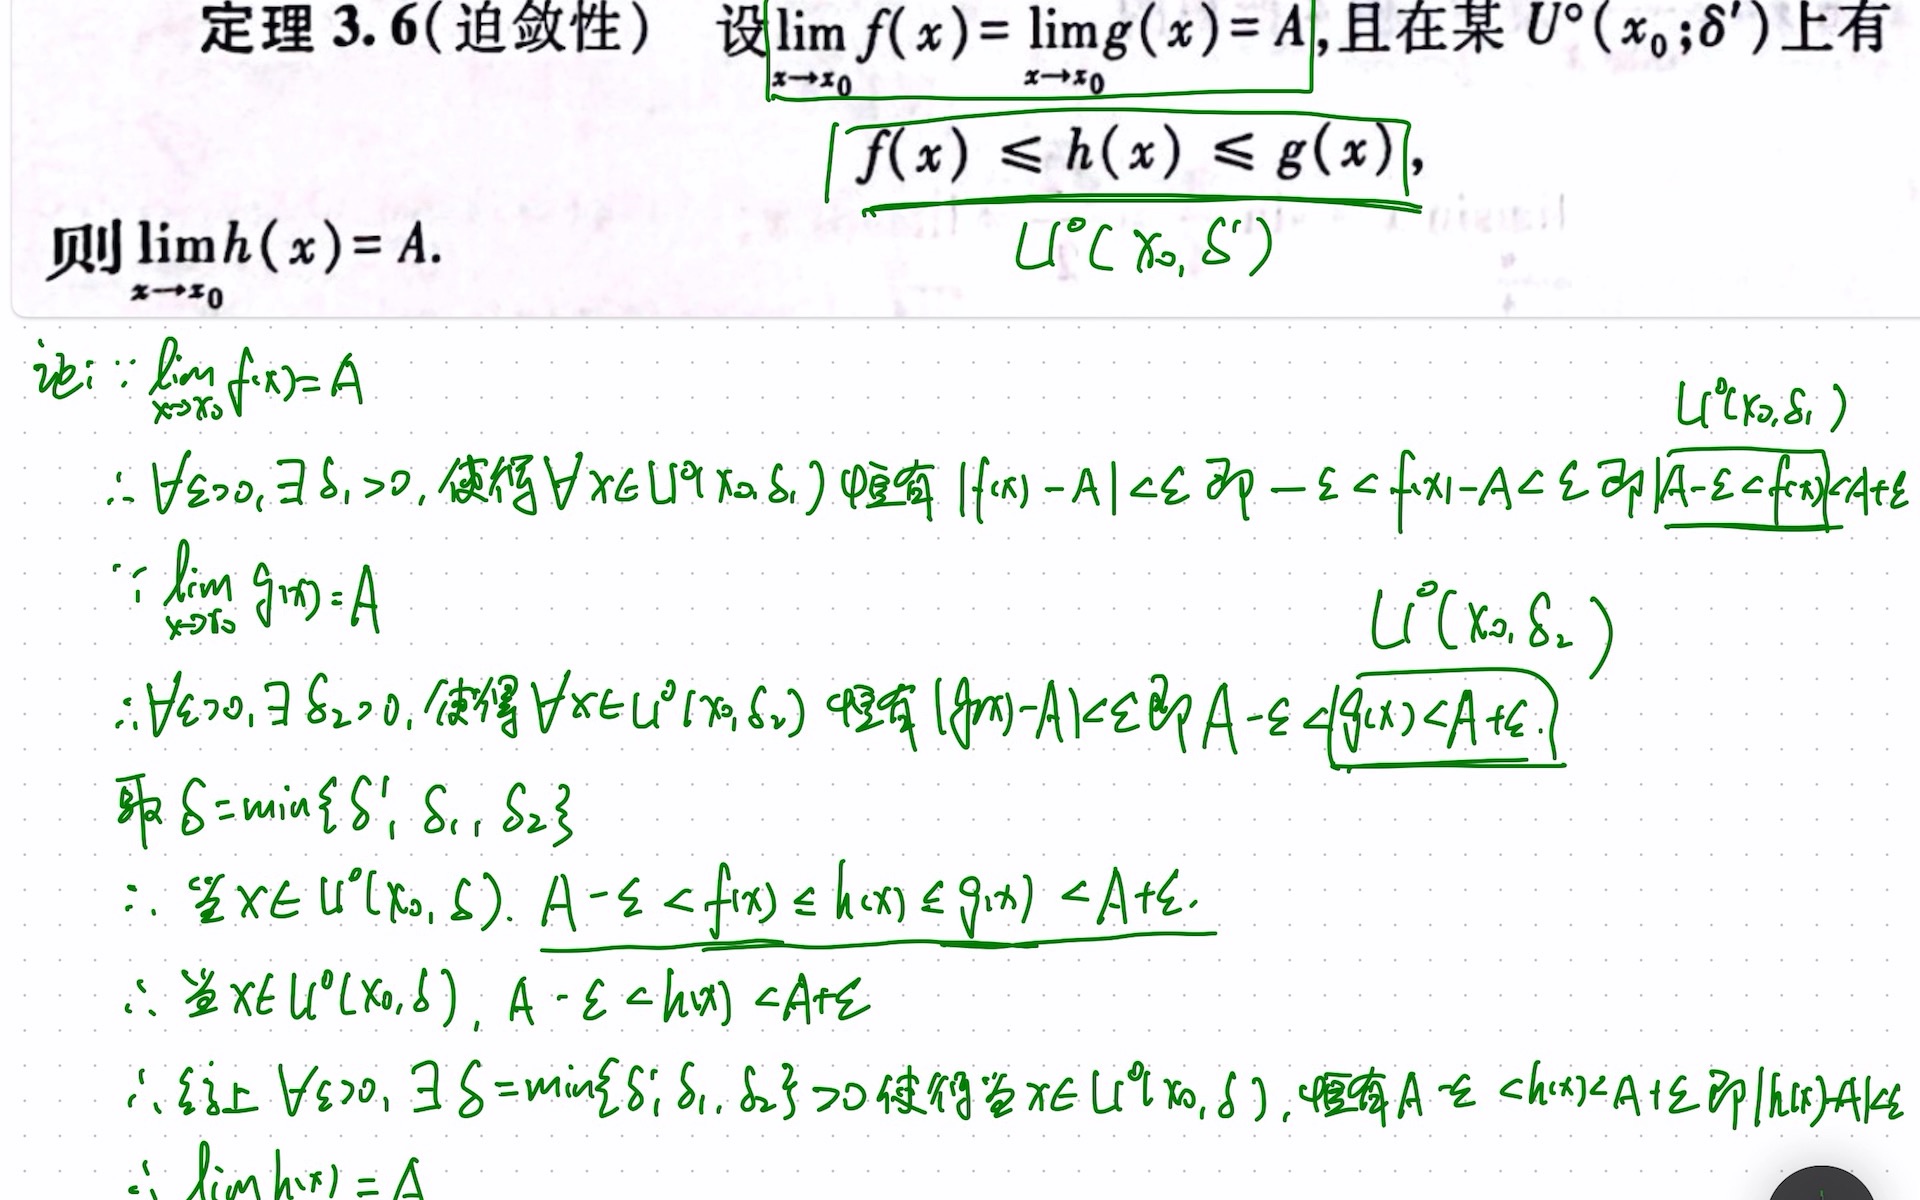 定理 3.6(迫敛性) 设 lim f(x) = lim g(x) = A, 且在某 U°(x₀;δ′)上有
x→x₀ x→x₀
f(x) ⩽ h(x) ⩽ g(x),
U°(x₀, δ′)
则 lim h(x) = A.
x→x₀
证: ∵ lim f(x) = A
x→x₀
U°(x₀, δ₁)
∴ ∀ε>0, ∃ δ₁>0, 使得 ∀x∈U°(x₀, δ₁) 恒有 |f(x)-A|<ε 即 -ε<f(x)-A<ε 即 A-ε<f(x)<A+ε
∵ lim g(x) = A
x→x₀
U°(x₀, δ₂)
∴ ∀ε>0, ∃ δ₂>0, 使得 ∀x∈U°(x₀, δ₂) 恒有 |g(x)-A|<ε 即 A-ε<g(x)<A+ε.
取 δ=min{δ′, δ₁, δ₂}
∴ 当 x∈U°(x₀, δ). A-ε<f(x)≤h(x)≤g(x)<A+ε.
∴ 当 x∈U°(x₀, δ), A-ε<h(x)<A+ε
∴ 综上 ∀ε>0, ∃ δ=min{δ′, δ₁, δ₂}>0 使得当 x∈U°(x₀, δ), 恒有 A-ε<h(x)<A+ε 即 |h(x)-A|<ε
∴ lim h(x) = A